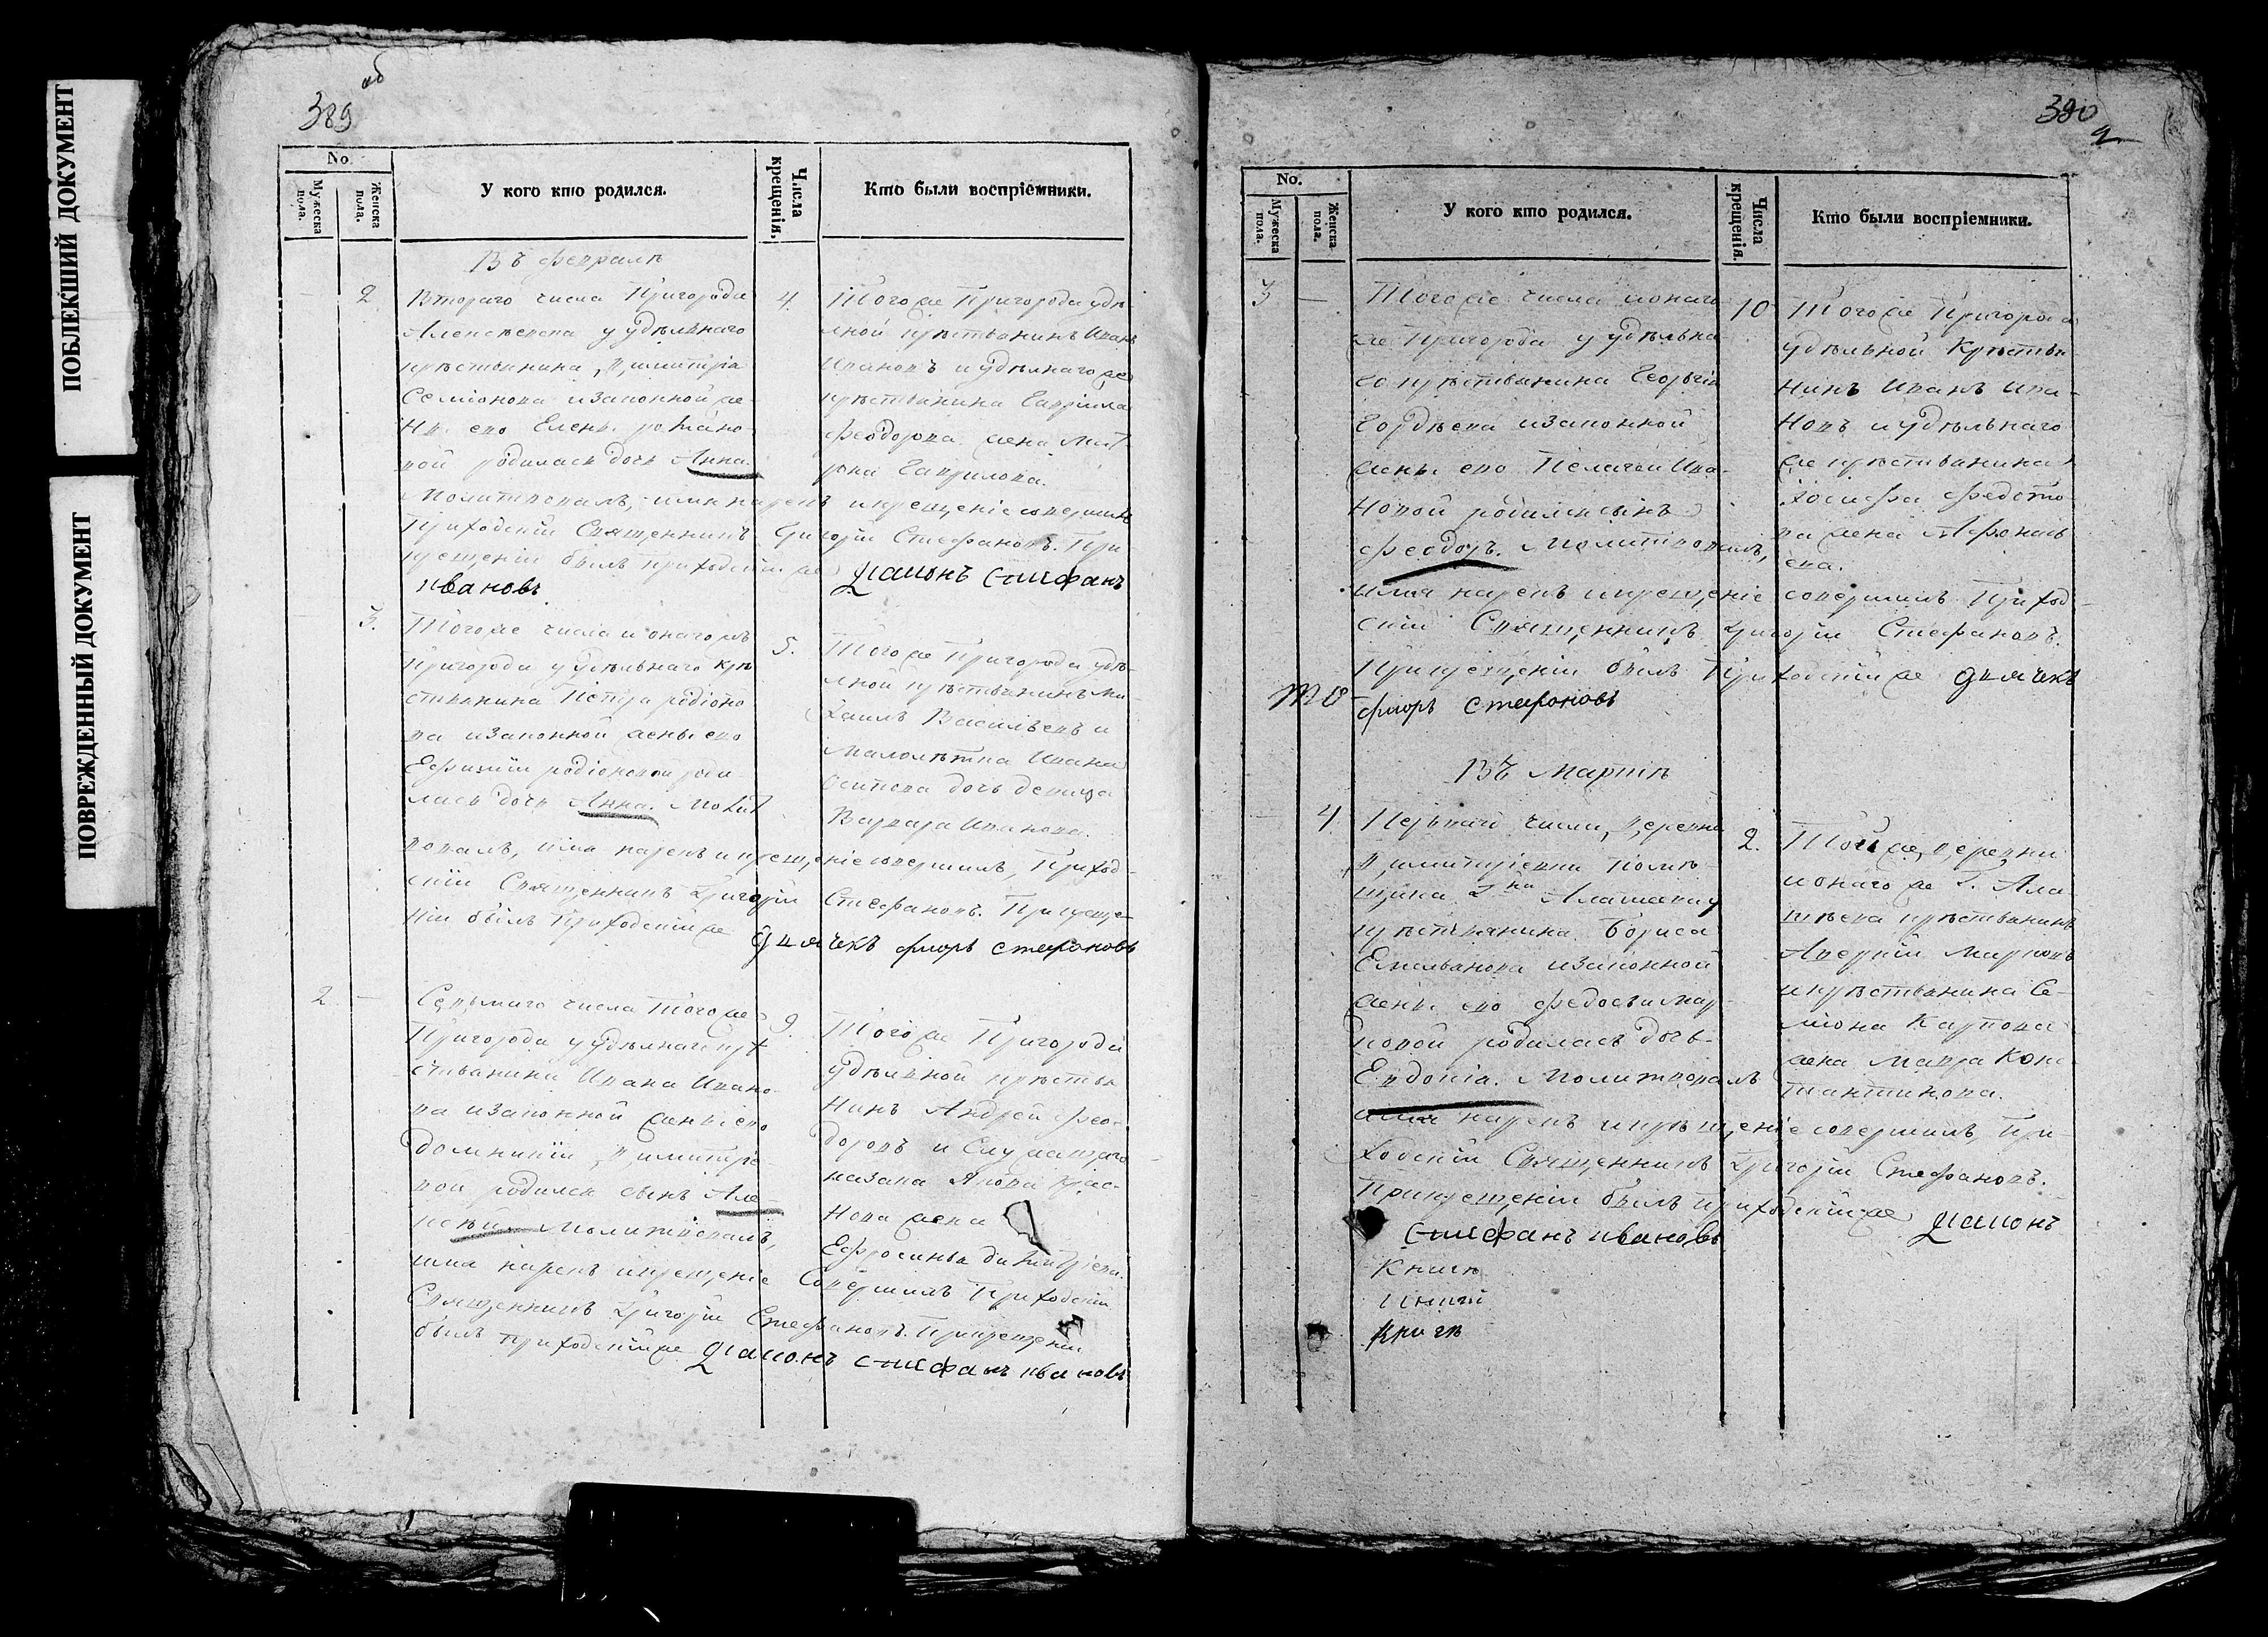 ПОБЛЕКШИЙ ДОКУМЕНТ
ПОВРЕЖДЕННЫЙ ДОКУМЕНТ
389
об
No
Мужеска пола.
Женска пола.
У кого кто родился.
Числа крещенія.
Кто были воспріемники.
Въ Февралѣ
2.
Втораго числа Пригорода
Алексѣевска у удѣльнаго
крѣстьянина Димитрія
Семіонова и законной же-
ны его Елены
родилась дочь Анна.
Молитвовалъ, имя нарекъ и крещеніе совершилъ
Приходскій Священникъ Григорій Стефановъ. При
крещеніи былъ приходскій же діаконъ Стефанъ
ивановъ
4.
Того же Пригорода удѣ
льной крѣстьянинъ Иванъ
Ивановъ и удѣлнаго же
крѣстьянина Гавріила
Феодорова жена
Гаврилова.
3.
Того же числа и онаго жъ
Пригорода у удѣльнаго крѣ
стьянина Петра родіоно
ва и законной жены его
Ефиміи родіоновой роди
лась дочь Анна. Молит
вовалъ, имя нарекъ и крещеніе совершилъ, Приход-
скій Священникъ Григорій Стефановъ. При креще-
ніи былъ Приходскій же дьячекъ флоръ стефановъ
5.
Того же Пригорода удѣ-
льной крѣстьянинъ Ми-
хаилъ Васильевъ и
малолѣтна Ивана
Осипова дочь девица
Варвара Иванова.
2.
Седьмаго числа того же
Пригорода у удѣлнаго крѣ
стьянина Ивана Ивано-
ва и законной жены его
Домникіи Димитріе
вой родился сынъ Але-
ксѣй. Молитвовалъ,
имя нарекъ и крещеніе совершилъ Приходскій
Священникъ Григорій Стефановъ. При крещеніи
былъ приходскій же діаконъ стефанъ ивановъ
9.
Того же Пригорода
удѣльной крѣстья
нинъ Андрей Фео-
доровъ и Служащаго
казака Якова Крас-
нова жена
Ефросинья Димитріева.
390
2
No.
Мужеска пола.
Женска пола.
У кого кто родился.
Числа крещенія.
Кто были воспріемники.
3
Того же числа и онаго
же Пригорода у удѣльна
го крѣстьянина Георгія
Гордѣева и законной
жены его Пелагеи Ива-
новой родился сынъ
Феодоръ. Молитвовалъ,
имя нарекъ и крещеніе совершилъ Приход-
скій Священникъ Григорій Стефановъ.
При крещеніи былъ Приходскій же дьячекъ
флоръ стефановъ
10
Того же Пригорода
удѣльной Крѣстья
нинъ Иванъ Ива-
новъ и удѣльнаго
же крѣстьянина
Іосифа Федото-
ва жена Афонась
ева.
Въ Мартѣ
4.
Перваго числа Деревни
Димитріевки помѣ-
щика Г-на Алашеева у
крѣстьянина Бориса
Емельянова и законной
жены его Федосьи Мар-
ковой родилась дочь
Евдокія. Молитвовалъ
имя нарекъ и крещеніе совершилъ, При-
ходскій Священникъ Григорій Стефановъ.
При крещеніи былъ приходскій же діаконъ
Стефанъ ивановъ
2.
Той же деревни
и онаго же Г. Ала-
шѣева крѣстьянинъ
Аверкій Марковъ
и крѣстьянина Се-
міона Карпова
жена Мавра Кон-
стантинова.
Книгѣ
Книгѣ